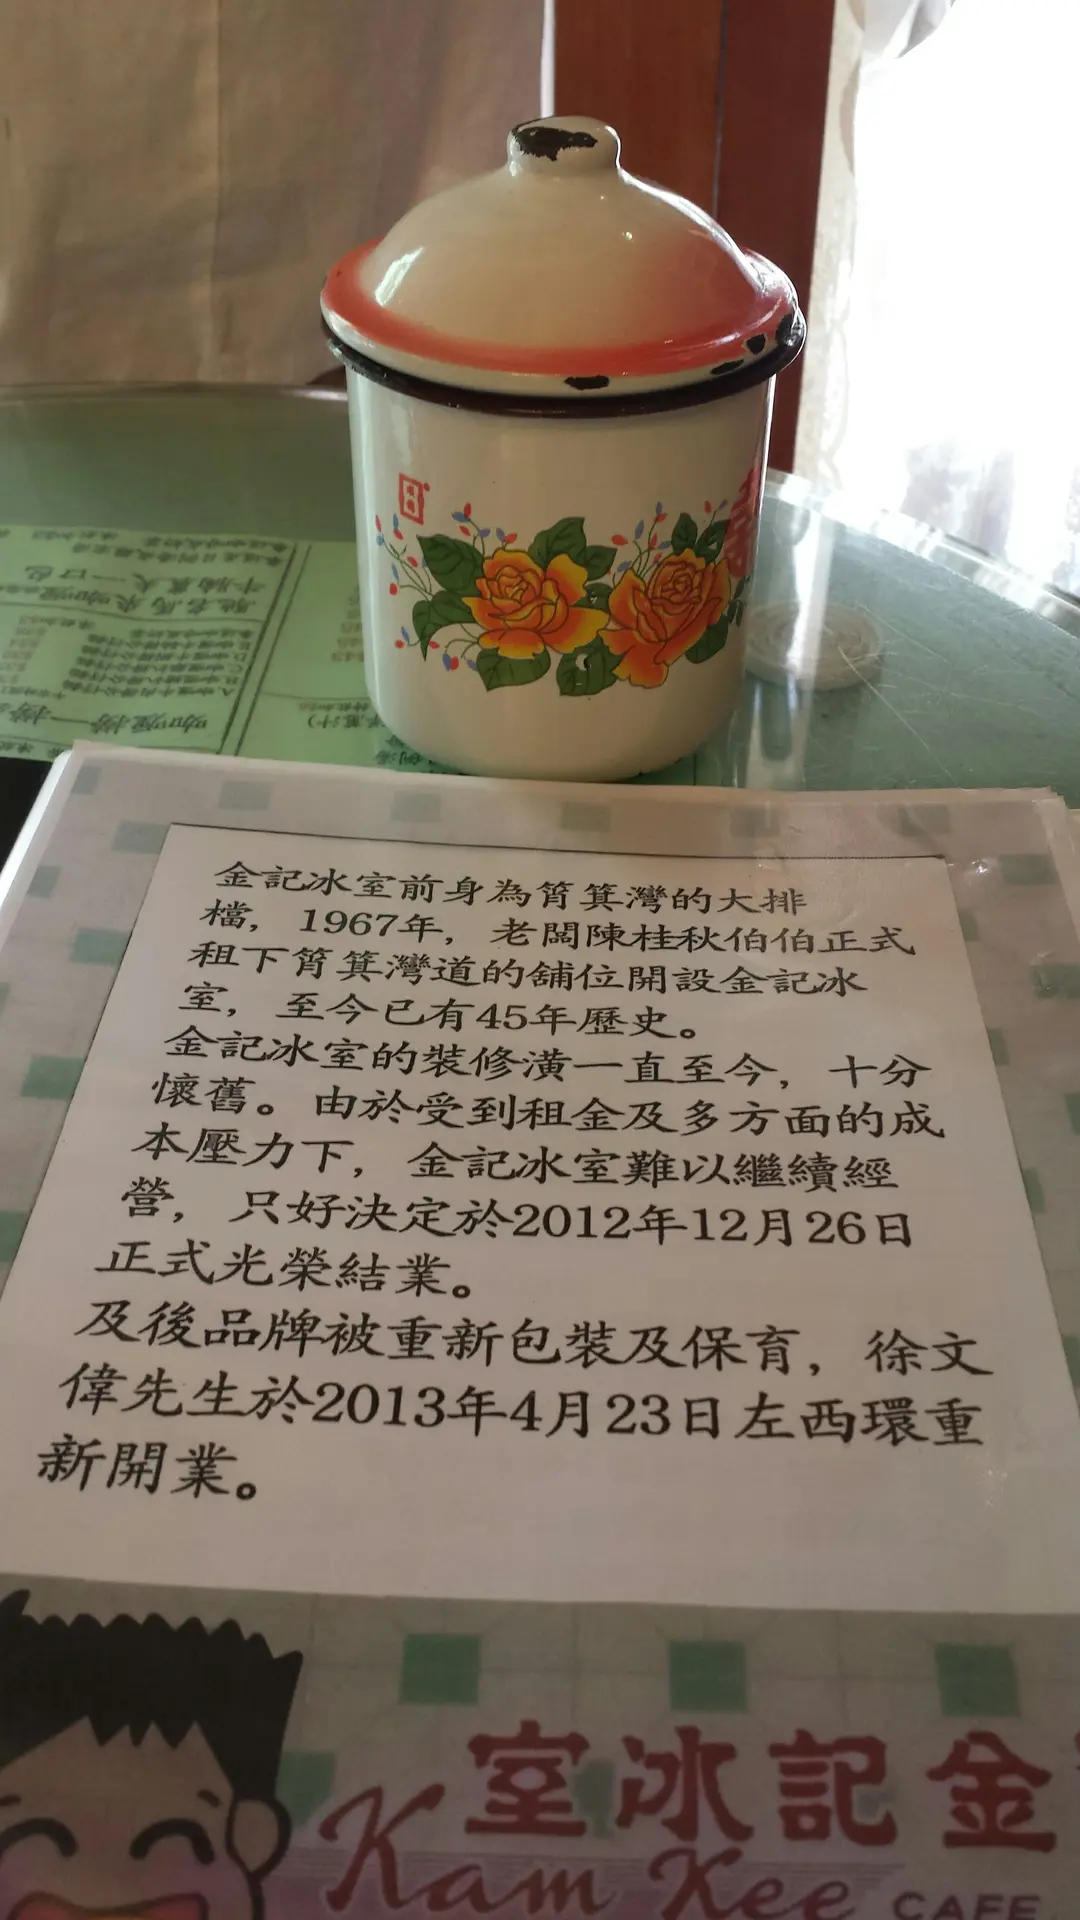 金記冰室前身為筲箕灣的大排
檔，1967年，老闆陳桂秋伯伯正式
租下筲箕灣道的舖位開設金記冰
室，至今已有45年歷史。
金記冰室的裝修潢一直至今，十分
懷舊。由於受到租金及多方面的成
本壓力下，金記冰室難以繼續經
營，只好決定於2012年12月26日
正式光榮結業。
及後品牌被重新包裝及保育，徐文
偉先生於2013年4月23日左西環重
新開業。
室冰記金
Kam Kee CAFE